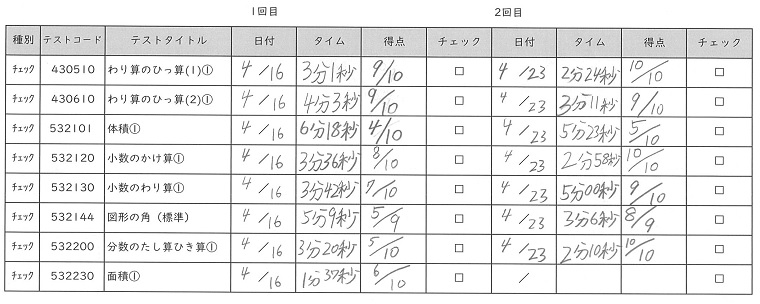 1回目 2回目
種別 テストコード テストタイトル 日付 タイム 得点 チェック 日付 タイム 得点 チェック
チェック 430510 わり算のひっ算(1)① 4/16 3分1秒 9/10 □ 4/23 2分24秒 10/10 □
チェック 430610 わり算のひっ算(2)① 4/16 4分3秒 9/10 □ 4/23 3分11秒 9/10 □
チェック 532101 体積① 4/16 6分18秒 4/10 □ 4/23 5分23秒 5/10 □
チェック 532120 小数のかけ算① 4/16 3分36秒 8/10 □ 4/23 2分58秒 10/10 □
チェック 532130 小数のわり算① 4/16 3分42秒 7/10 □ 4/23 5分00秒 9/10 □
チェック 532144 図形の角（標準） 4/16 5分9秒 5/9 □ 4/23 3分6秒 8/9 □
チェック 532200 分数のたし算ひき算① 4/16 3分20秒 5/10 □ 4/23 2分10秒 10/10 □
チェック 532230 面積① 4/16 1分37秒 6/10 □ / □